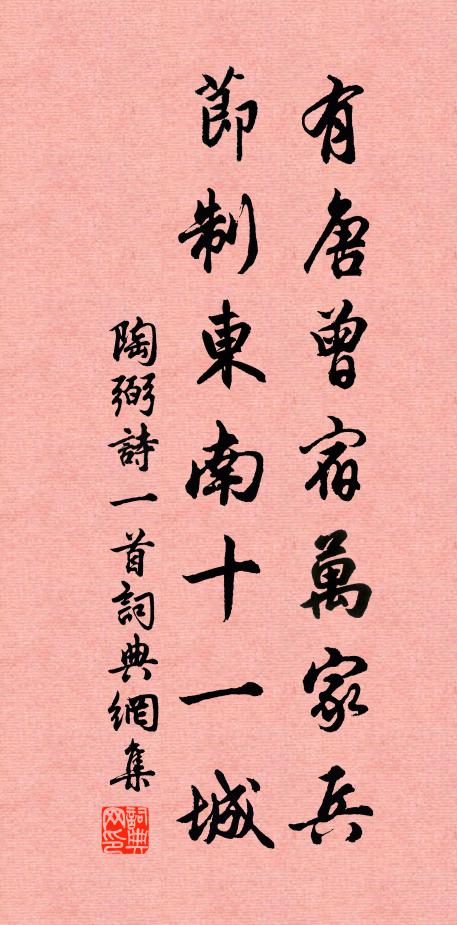 有唐曾宿萬家兵
節制東南十一城
陶弼詩一首詞典網集
詞典网印